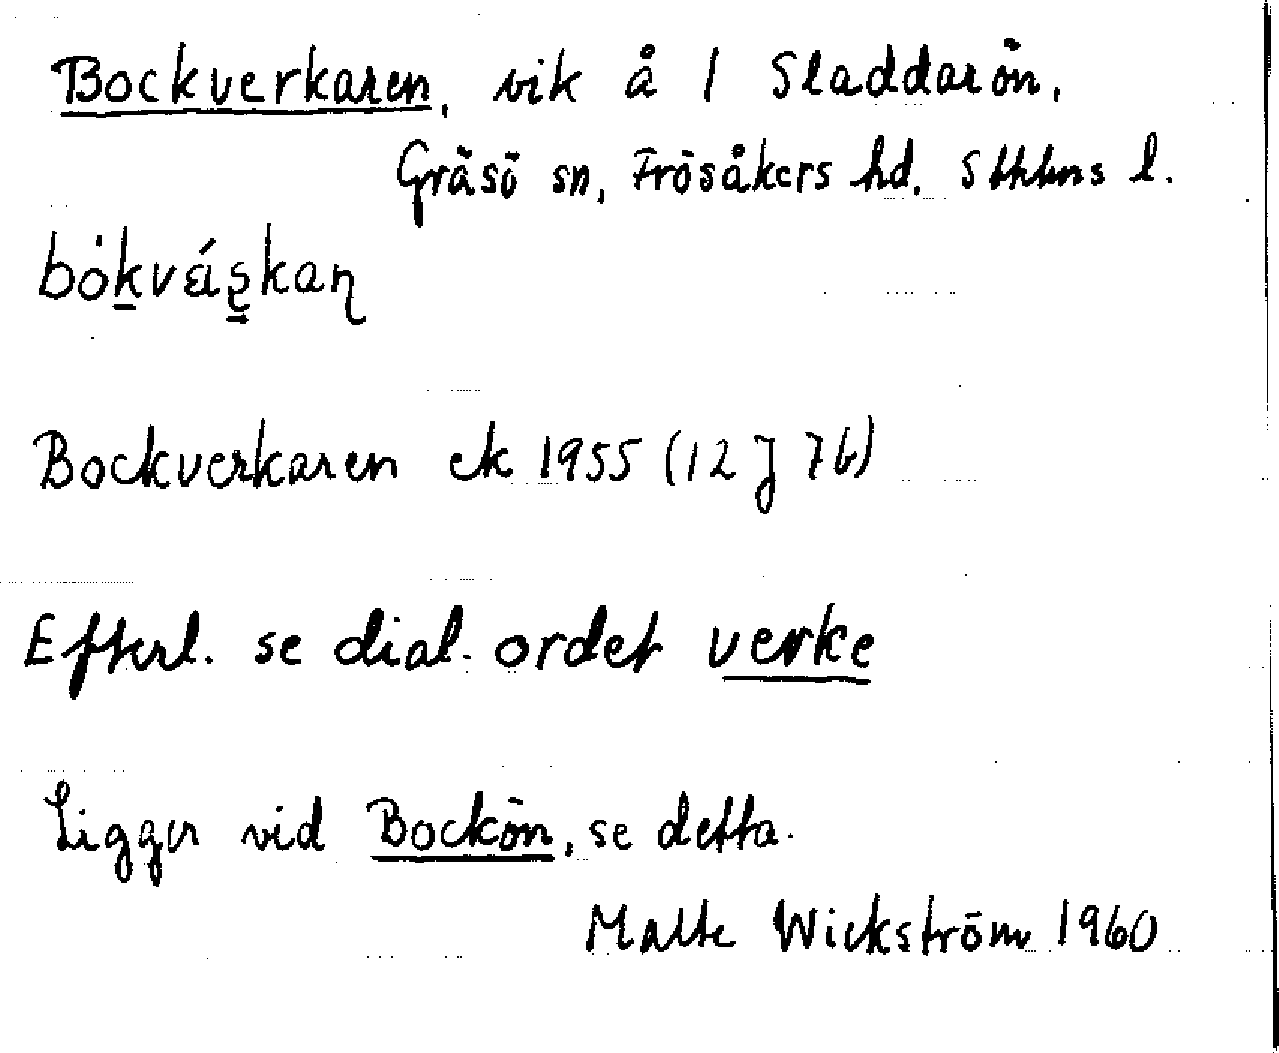 Bockverkaren, vik å 1 Sladdarön,
Gräsö sn, Frösåkers hd. Sthlms l.
Bockverkaren ek 1955 (12 J 7b)
Efterl. se dial. ordet verke
Ligger vid Bockön, se detta.
Malte Wickström 1960